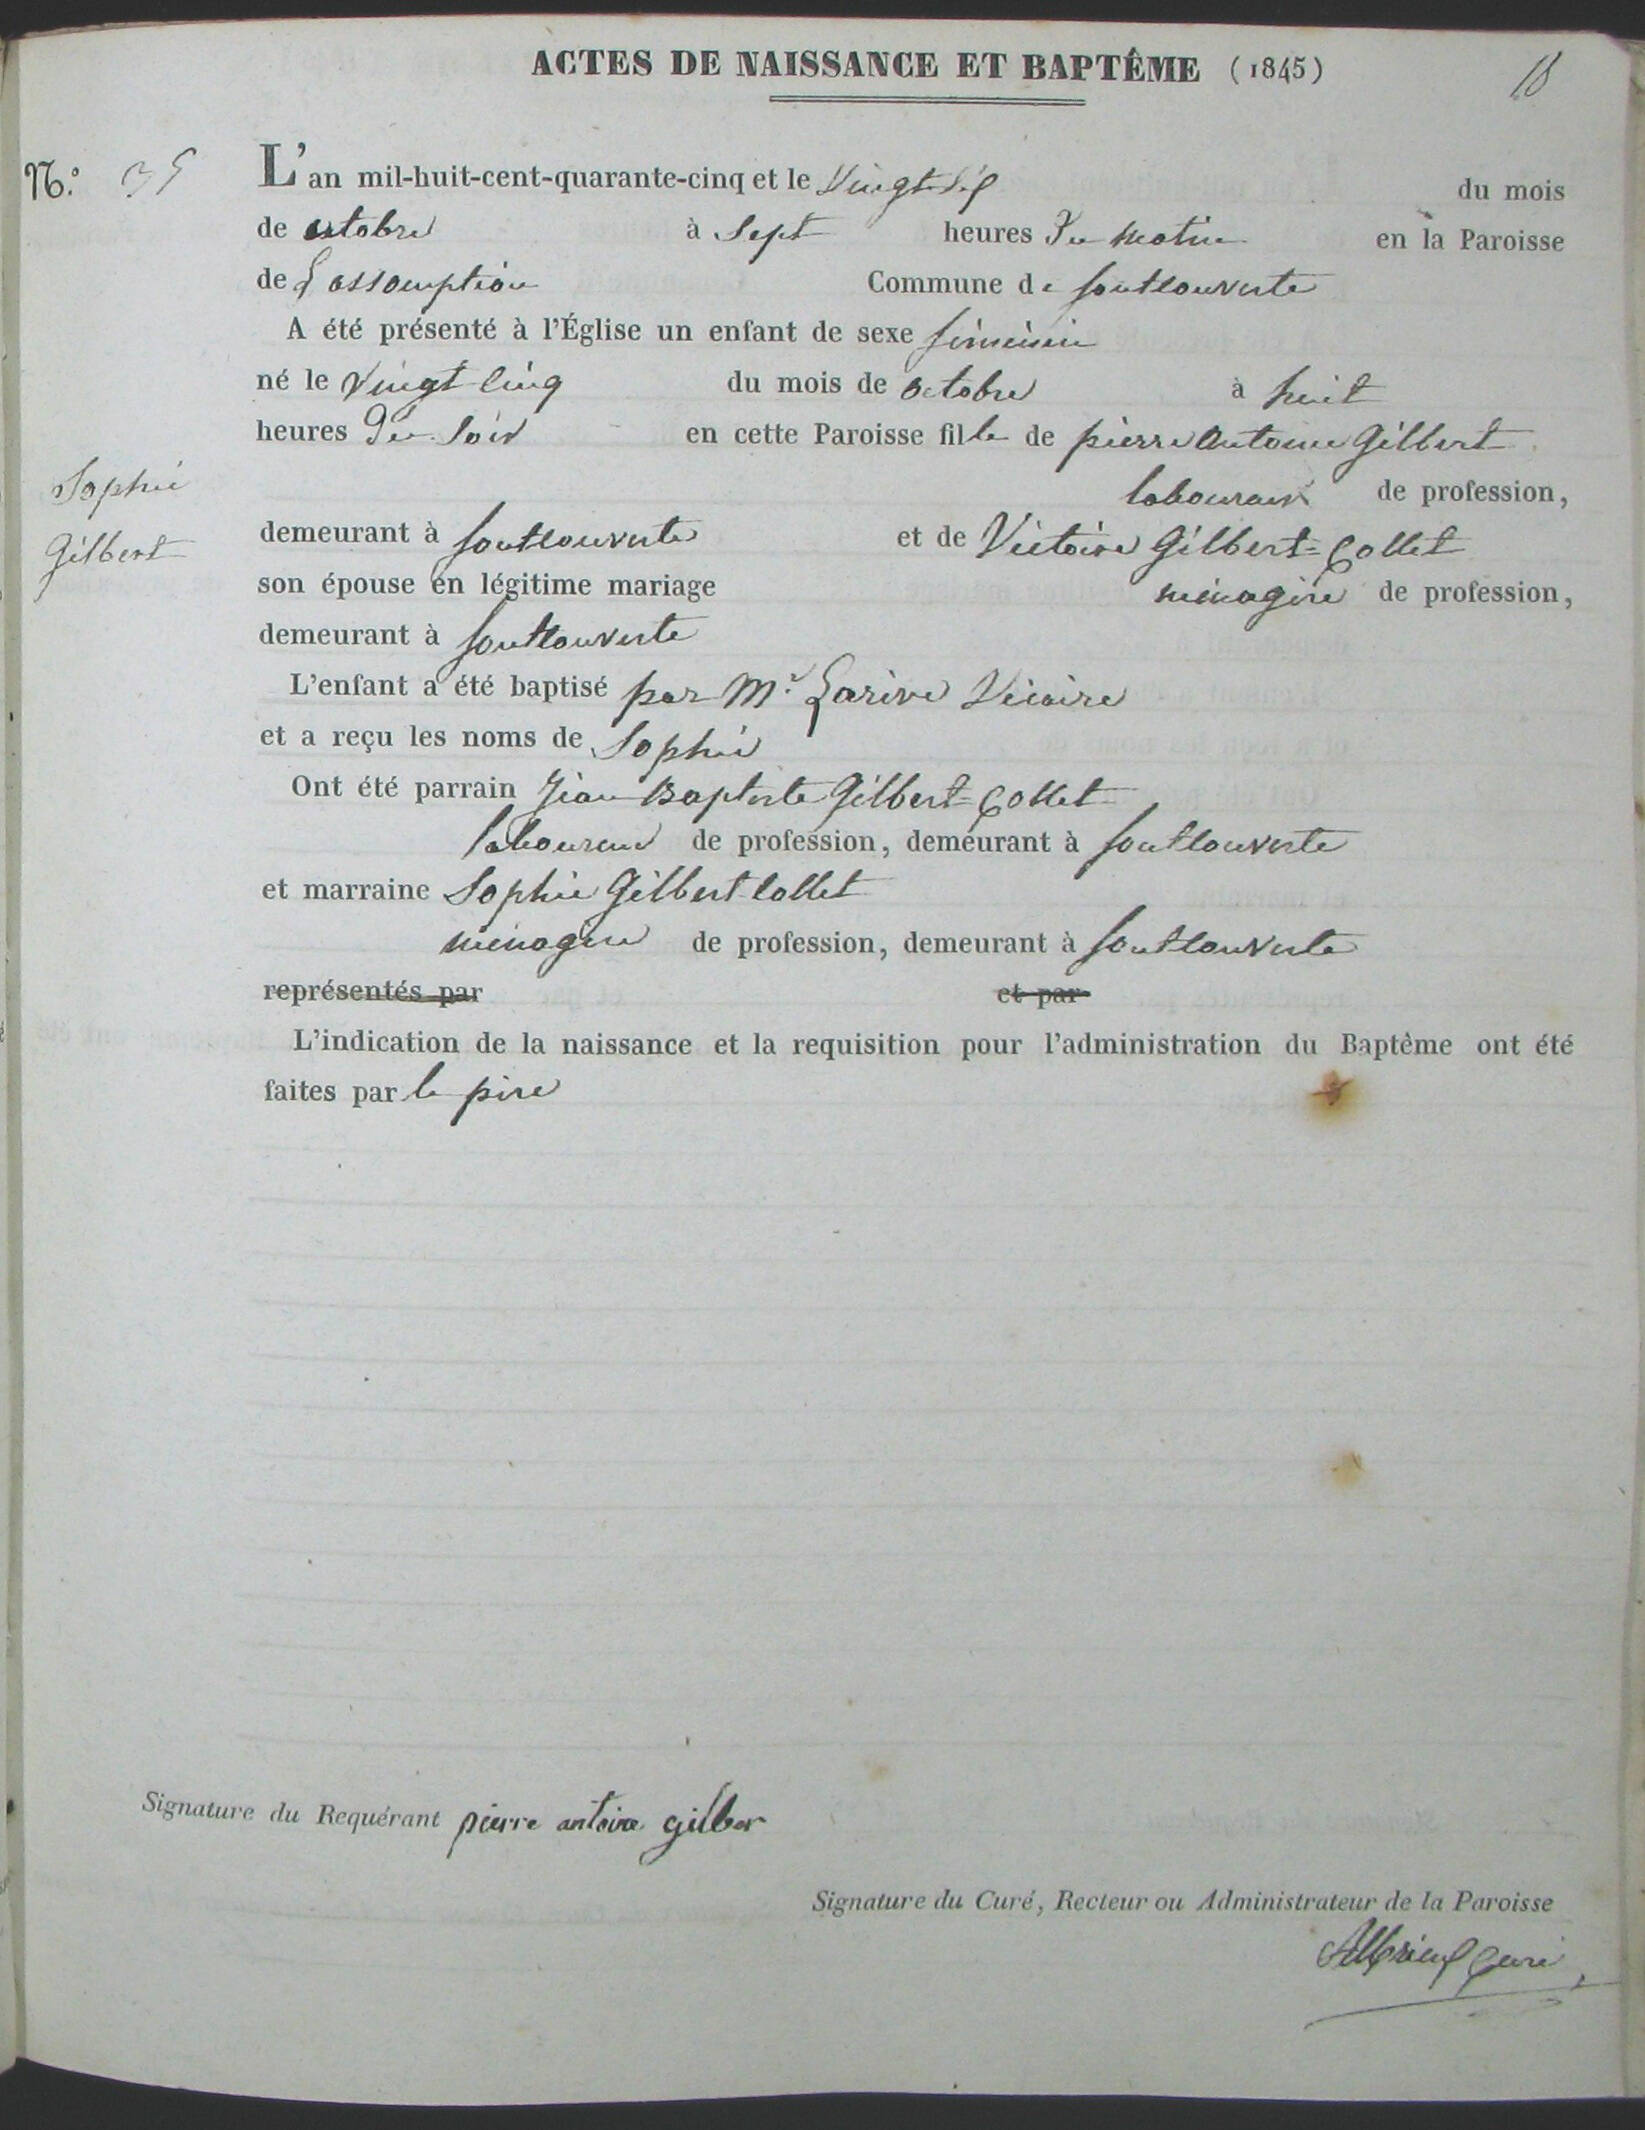 ACTES DE NAISSANCE ET BAPTÊME (1845)
18
N.º 35
L'an mil-huit-cent-quarante-cinq et le Vingt Six du mois
de octobre à Sept heures Du matin en la Paroisse
de L'assomption Commune de fontcouverte
A été présenté à l'Église un enfant de sexe féminin
né le Vingt Cinq du mois de octobre à huit
heures Du Soir en cette Paroisse fille de pierre antoine Gilbert
laboureur de profession,
Sophie
Gilbert
demeurant à fontcouverte et de Victoire Gilbert=Collet
son épouse en légitime mariage ménagère de profession,
demeurant à fontcouverte
L'enfant a été baptisé par Mr. Larive Vicaire
et a reçu les noms de Sophie
Ont été parrain Jean Baptiste Gilbert=Collet
laboureur de profession, demeurant à fontcouverte
et marraine Sophie Gilbert Collet
ménagère de profession, demeurant à fontcouverte
représentés par et par
L'indication de la naissance et la requisition pour l'administration du Baptême ont été
faites par le père
Signature du Requérant pierre antoine gilber
Signature du Curé, Recteur ou Administrateur de la Paroisse
curé